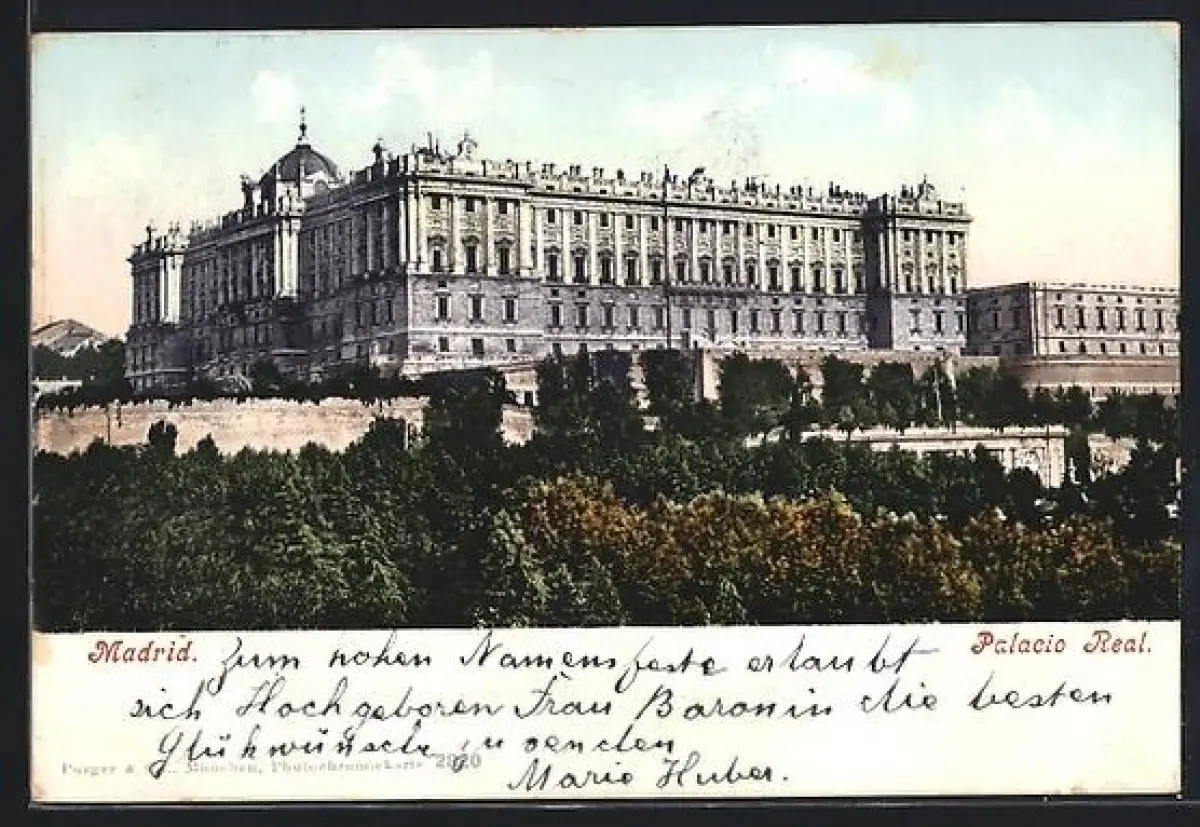 Madrid.
Palacio Real.
Zum hohen Namensfeste erlaubt
sich Hochgeboren Frau Baronin die besten
Glükwünsche zu senden
Marie Huber.
Purger & Co., München, Photochromiekarte 2820